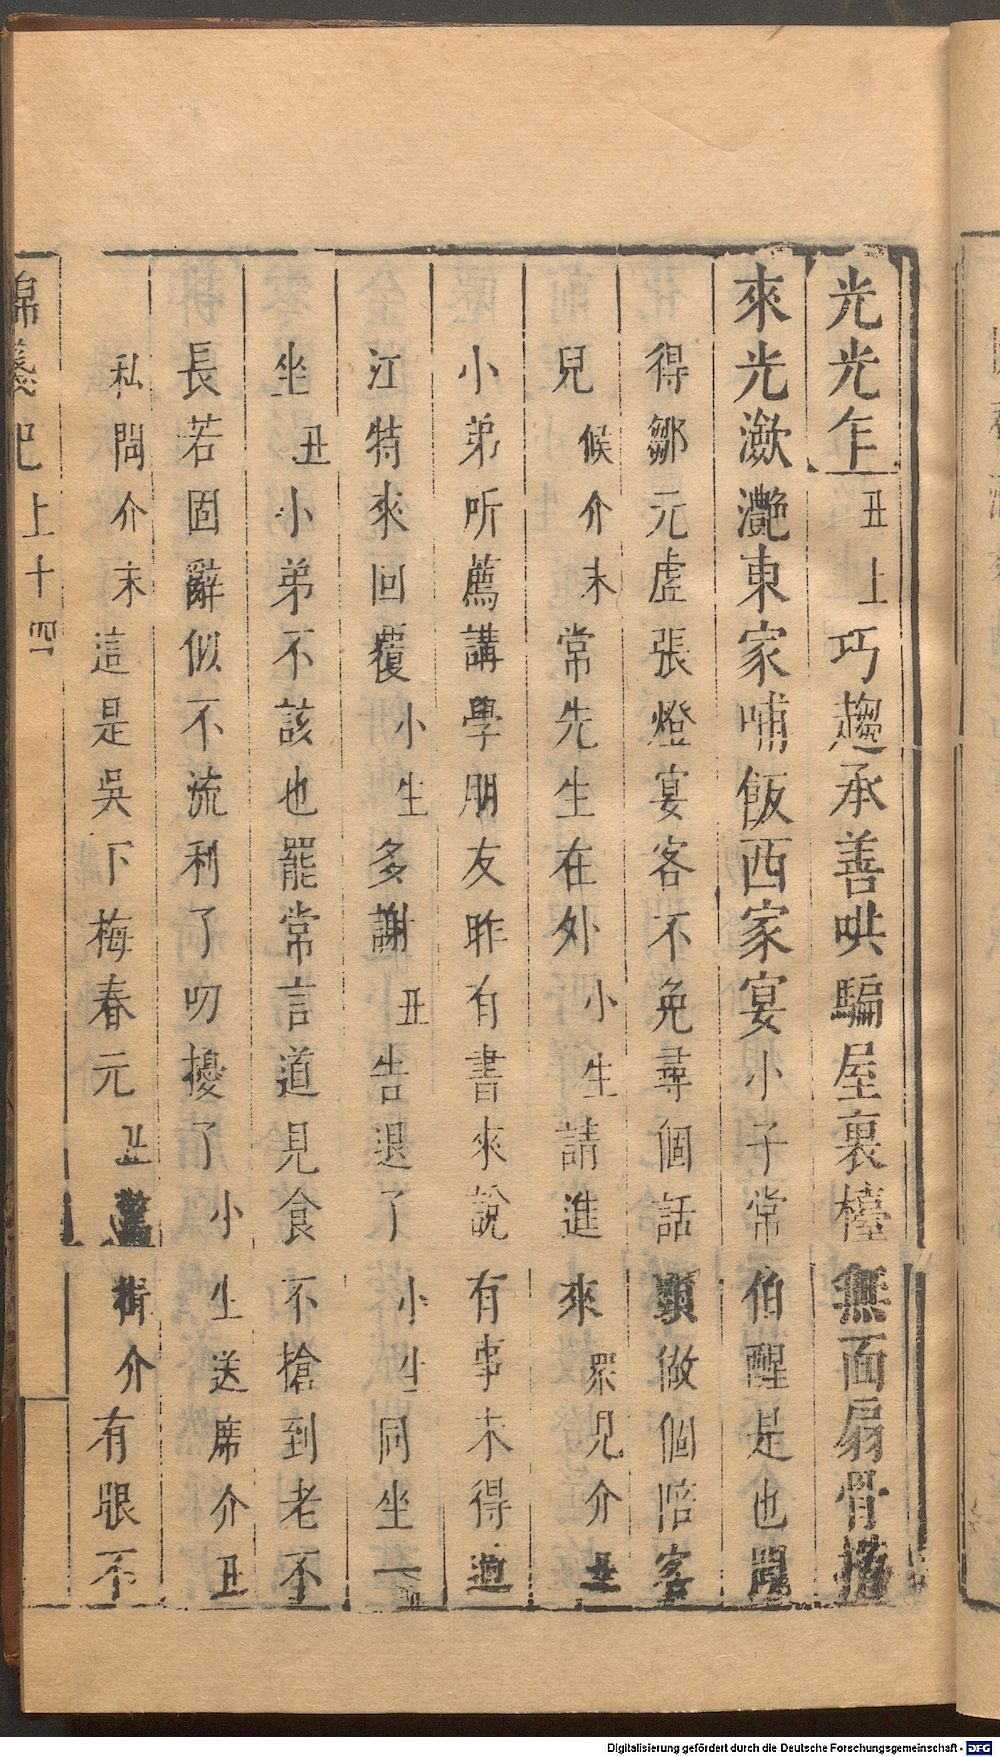 光光乍丑上巧趨承善哄騙屋裏檯無面扇骨搖
來光瀲灧東家哺飯西家宴小子常伯醒是也聞
得鄒元虛張燈宴客不免尋個話頭做個陪客
兒候介末常先生在外小生請進來眾見介丑
小弟听薦講學朋友昨有書來說有事未得過
江特來回覆小生多謝丑告退了小生同坐一
坐丑小弟不該也罷常言道見食不搶到老不
長若固辭似不流利了叨擾了小生送席介丑
私問介末這是吳下梅春元丑驚揖介有眼不
錦箋記上十四
Digitalisierung gefördert durch die Deutsche Forschungsgemeinschaft - DFG